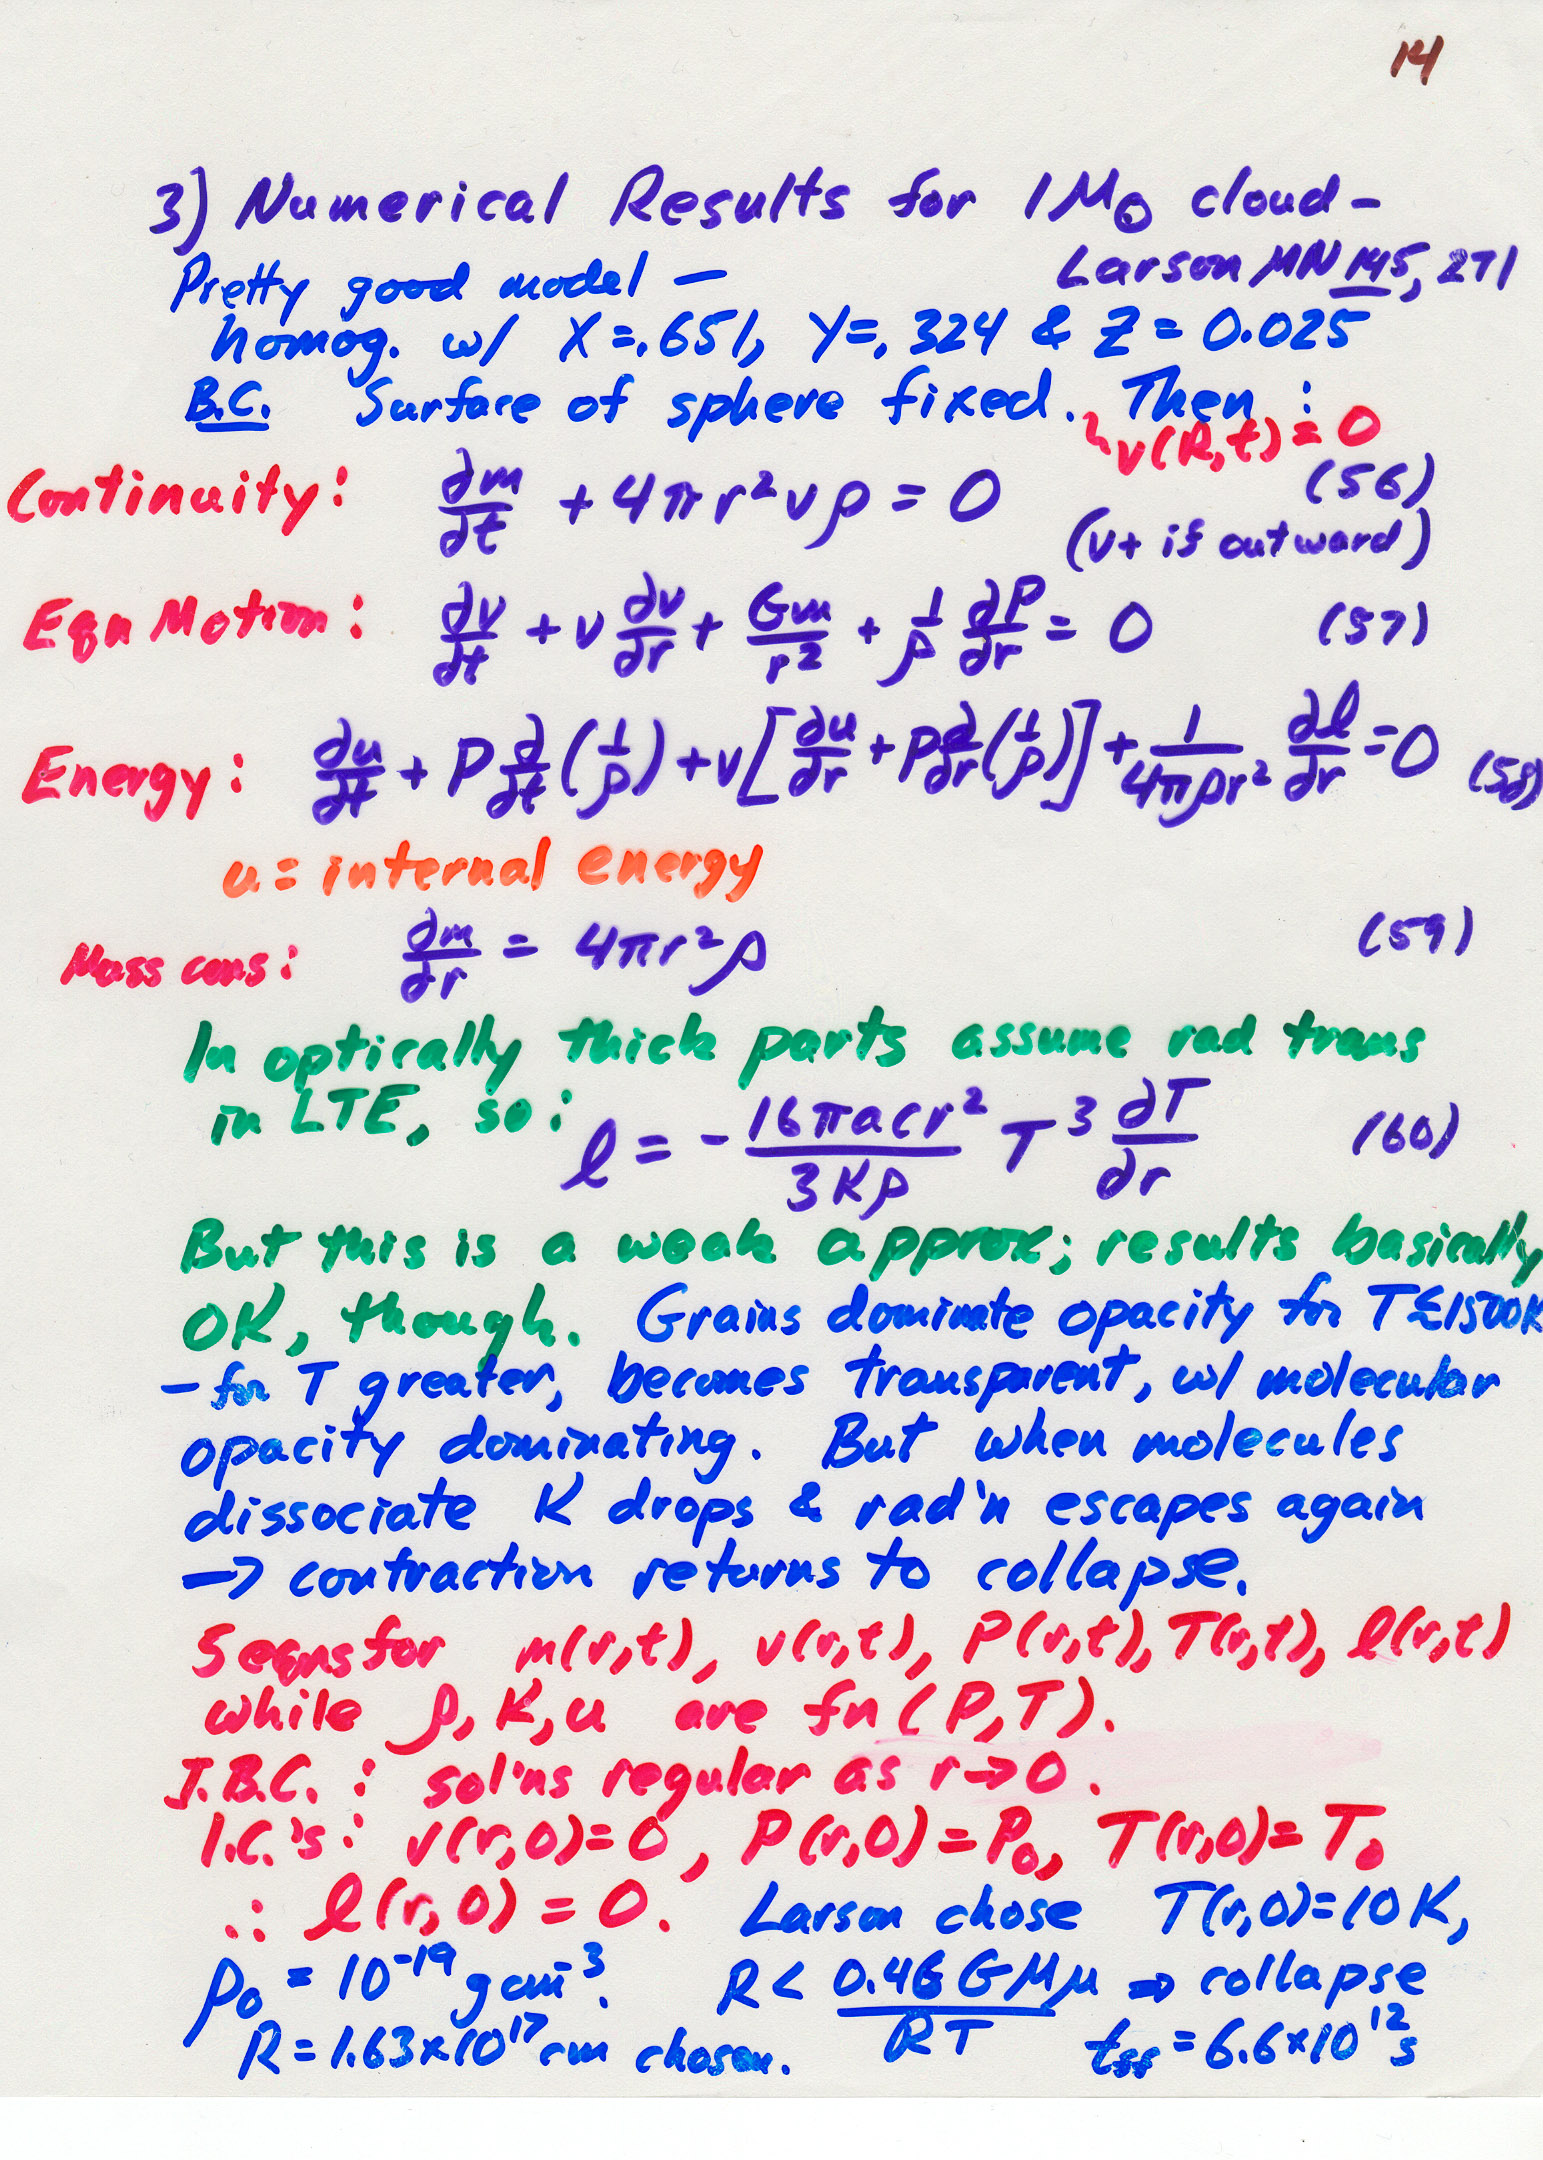 14
3) Numerical Results for 1M⊙ cloud -
Larson MN 145, 271
Pretty good model -
homog. w/ X=.651, Y=.324 & Z=0.025
B.C. Surface of sphere fixed. Then :
↳v(R,t)=0
Continuity: ∂m/∂t + 4πr²vρ = 0 (56)
(v+ is outward)
Eqn Motion: ∂v/∂t + v ∂v/∂r + Gm/r² + 1/ρ ∂P/∂r = 0 (57)
Energy: ∂u/∂t + P ∂/∂t (1/ρ) + v[∂u/∂r + P ∂/∂r (1/ρ)] + 1/4πρr² ∂l/∂r = 0 (58)
u = internal energy
Mass cons: ∂m/∂r = 4πr²ρ (59)
In optically thick parts assume rad trans
in LTE, so: l = - 16πacr²/3Kρ T³ ∂T/∂r (60)
But this is a weak approx; results basically
OK, though. Grains dominate opacity for T≲1500K
- for T greater, becomes transparent, w/ molecular
opacity dominating. But when molecules
dissociate K drops & rad'n escapes again
→ contraction returns to collapse.
5 eqns for m(r,t), v(r,t), P(r,t), T(r,t), l(r,t)
while ρ, K, u are fn(P,T).
I.B.C.: sol'ns regular as r→0.
I.C.'s: v(r,0)=0, P(r,0)=P₀, T(r,0)=T₀
∴ l(r,0) = 0. Larson chose T(r,0)=10K,
ρ₀ = 10⁻¹⁹ g cm⁻³. R < 0.46 GMμ/RT ⇒ collapse
R = 1.63×10¹⁷ cm chosen. t_ff = 6.6×10¹² s